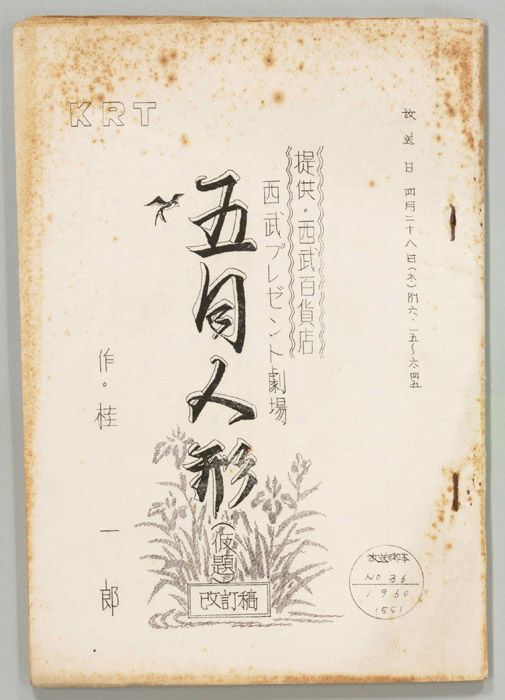 KRT
放送日 四月二十八日(木)附六、一五～六、四五
提供・西武百貨店
西武プレゼント劇場
五月人形
(仮題)
改訂稿
作。桂 一郎
放送台本
NO 36
1960
(55)